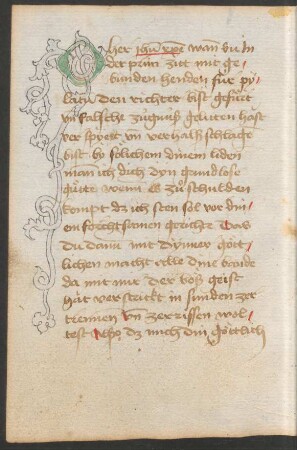 O her ihu xpe wan du in
der prim zitt mit ge
bunden henden fur py
latū den richter bist gefürt
vn̄ falsche zügnuß geliten hast
ver spyett vn̄ verhalß schlaget
bist by solichem dinem liden
man ich dich dyn grundlose
gütte wenn es zü schulden
kompt dz ich sten sol vor din
em forchtsamen gericht Das
du dann mit dyner göt
lichen macht alle die bande
da mit mir der böß geist
hat verstrickt in sunden zer
trennen vn̄ zerrissen wol
test Also dz mich din göttlich